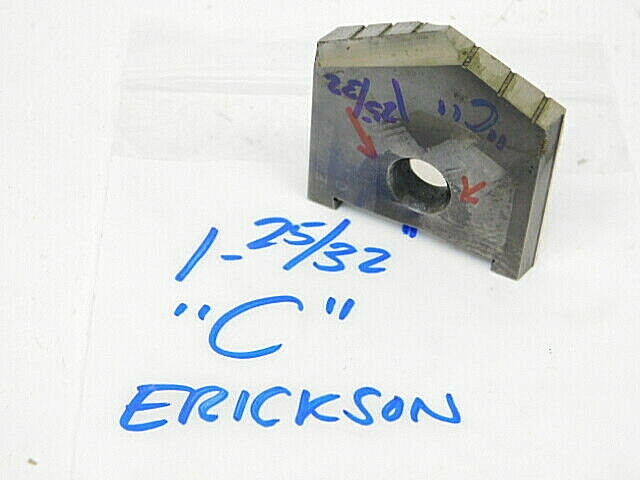 1 25/32
"C"
1-25/32"
"C"
ERICKSON